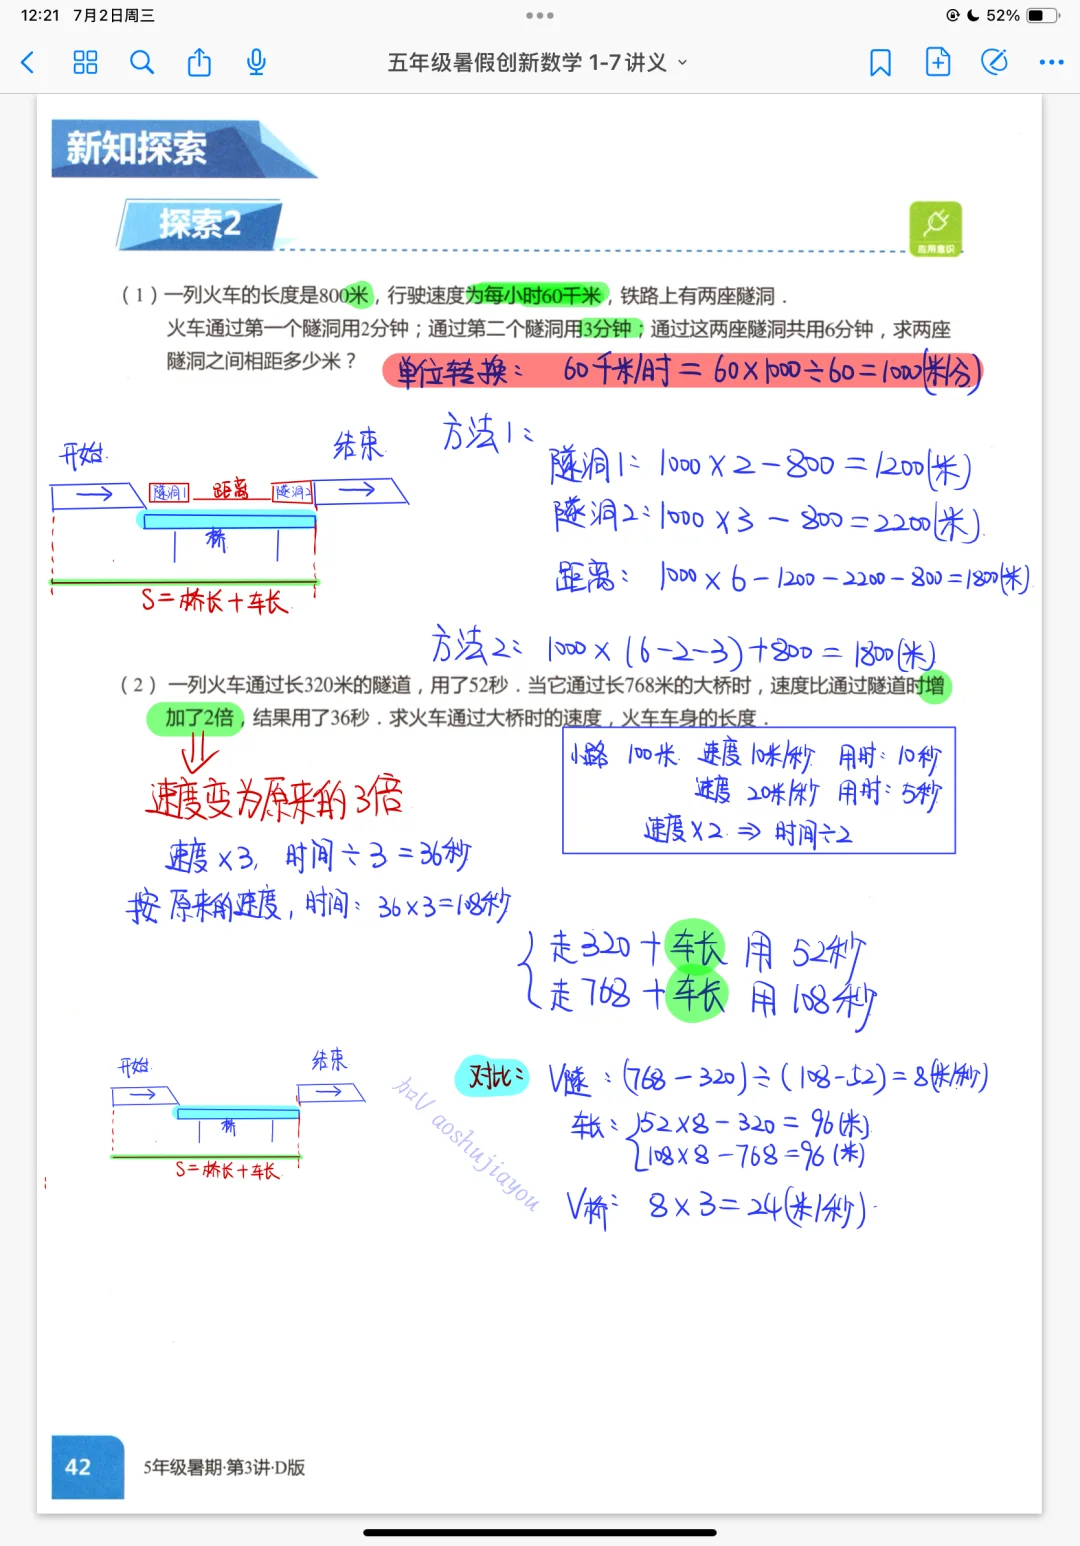 12:21 7月2日周三
52%
五年级暑假创新数学 1-7 讲义
新知探索
探索2
应用意识
（1）一列火车的长度是800米，行驶速度为每小时60千米，铁路上有两座隧洞．
火车通过第一个隧洞用2分钟；通过第二个隧洞用3分钟；通过这两座隧洞共用6分钟，求两座
隧洞之间相距多少米？
单位转换： 60千米/时＝60×1000÷60＝1000(米/分)
方法1：
开始
结束
隧洞1：1000×2－800＝1200(米)
隧洞1 距离 隧洞2
隧洞2：1000×3－800＝2200(米)
桥
距离：1000×6－1200－2200－800＝1800(米)
S＝桥长＋车长
方法2：1000×(6－2－3)＋800＝1800(米)
（2）一列火车通过长320米的隧道，用了52秒．当它通过长768米的大桥时，速度比通过隧道时增
加了2倍，结果用了36秒．求火车通过大桥时的速度，火车车身的长度．
小路 100米 速度10米/秒 用时：10秒
速度 20米/秒 用时：5秒
速度×2 ⇒ 时间÷2
速度变为原来的3倍
速度×3，时间÷3＝36秒
按原来的速度，时间：36×3＝108秒
走320＋车长 用 52秒
走768＋车长 用 108秒
开始
结束
对比：V隧：(768－320)÷(108－52)＝8(米/秒)
桥
车长：52×8－320＝96(米)
108×8－768＝96(米)
S＝桥长＋车长
V桥：8×3＝24(米/秒)
hzV aoshujiayou
42
5年级暑期·第3讲·D版